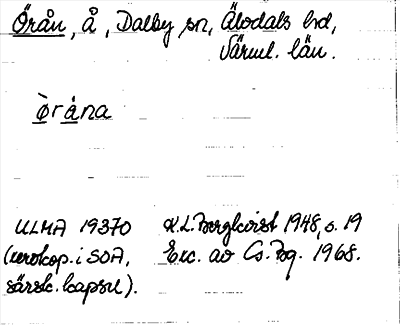 Örån, å, Dalby sn, Älvdals hd,
Värml. län.
òråna
ULMA 19370 K.L. Bergkvist 1948, s. 19
(xerokop. i SOA, Exc. av Cs. Bg. 1968.
särsk. kapsel).